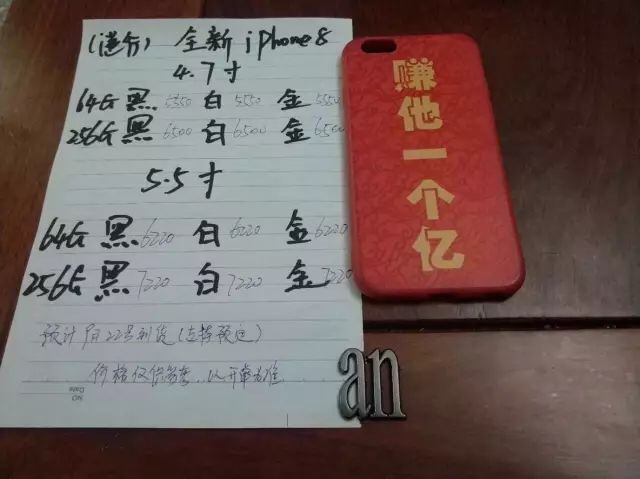 (港行) 全新 iPhone8
4.7寸
64G 黑 5550 白 5550 金 5550
256G 黑 6500 白 6500 金 6500
5.5寸
64G 黑 6220 白 6220 金 6220
256G 黑 7220 白 7220 金 7220
预计 22号到货(支持预定)
价格仅供参考，以开单为准
NO
Date
赚他一个亿
an